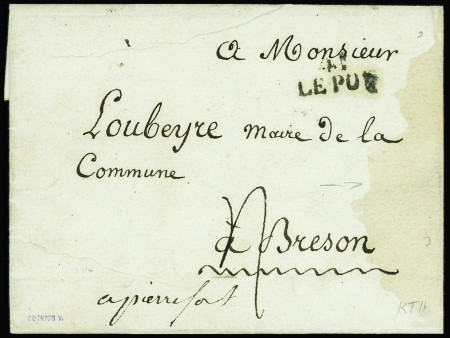 A Monsieur
41
LE PUY
Loubeyre Maire de la
Commune
à Breson
apierrefort
KT11